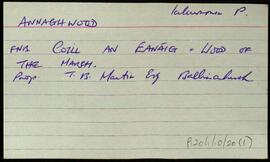 P.
ANNAGHWOOD
FNB COILL AN EANAIG - WOOD OF
THE MARSH.
Prop T. B. Martin Esq Ballinahinch
P120/1/10/20(1)